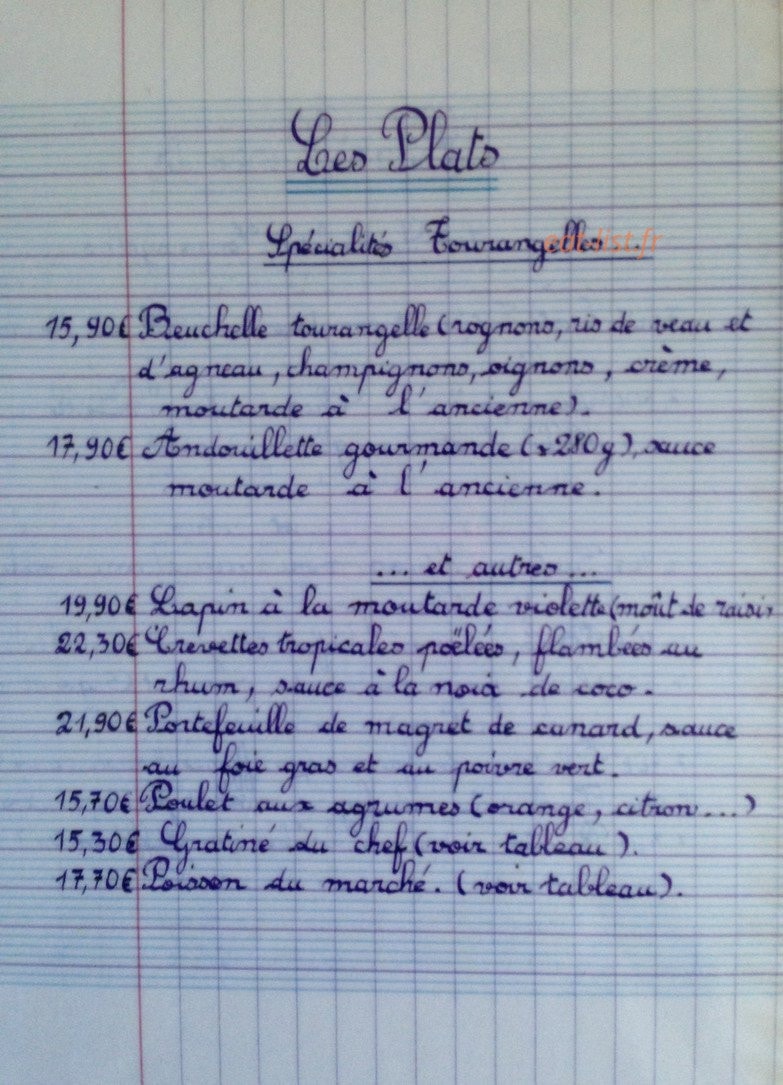 Les Plats
Spécialités Tourangelles.
15,90€ Beuchelle tourangelle (rognons, ris de veau et
d'agneau, champignons, oignons, crème,
moutarde à l'ancienne).
17,90€ Andouillette gourmande (± 280g), sauce
moutarde à l'ancienne.
... et autres ...
19,90€ Lapin à la moutarde violette (moût de raisin
22,30€ Crevettes tropicales poëlées, flambées au
rhum, sauce à la noix de coco.
21,90€ Portefeuille de magret de canard, sauce
au foie gras et au poivre vert.
15,70€ Poulet aux agrumes (orange, citron...)
15,30€ Gratiné du chef (voir tableau).
17,70€ Poisson du marché. (voir tableau).